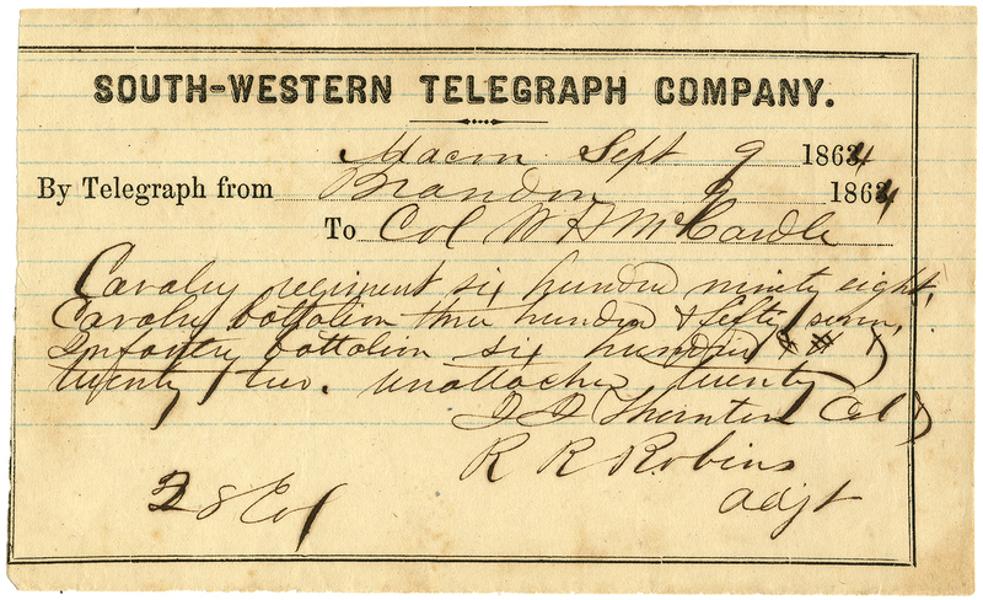 SOUTH-WESTERN TELEGRAPH COMPANY.
Macon Sept 9 1864
By Telegraph from Brandon 9 1864
To Col W H McCardle
Cavalry regiment six hundred ninety eight,
Cavalry battalion three hundred & fifty seven,
Infantry battalion six hundred &
twenty two. unattached twenty
Thornton Col
R R Robins
adjt
28